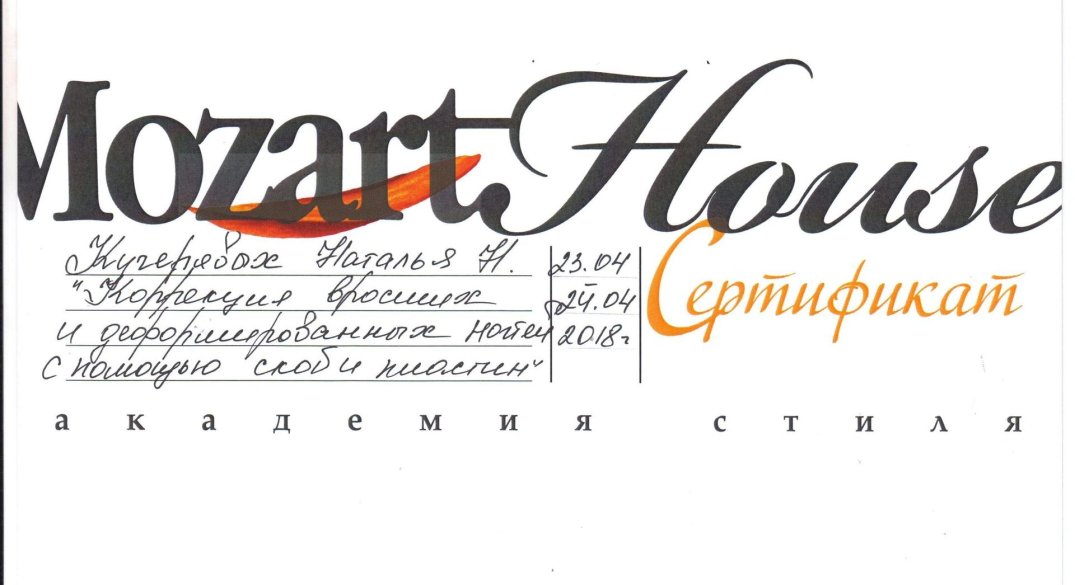 Mozart House
Сертификат
Кучерявых Наталья Н.
"Коррекция вросших
и деформированных ногтей
с помощью скоб и пластин"
23.04
24.04
2018г
академия стиля